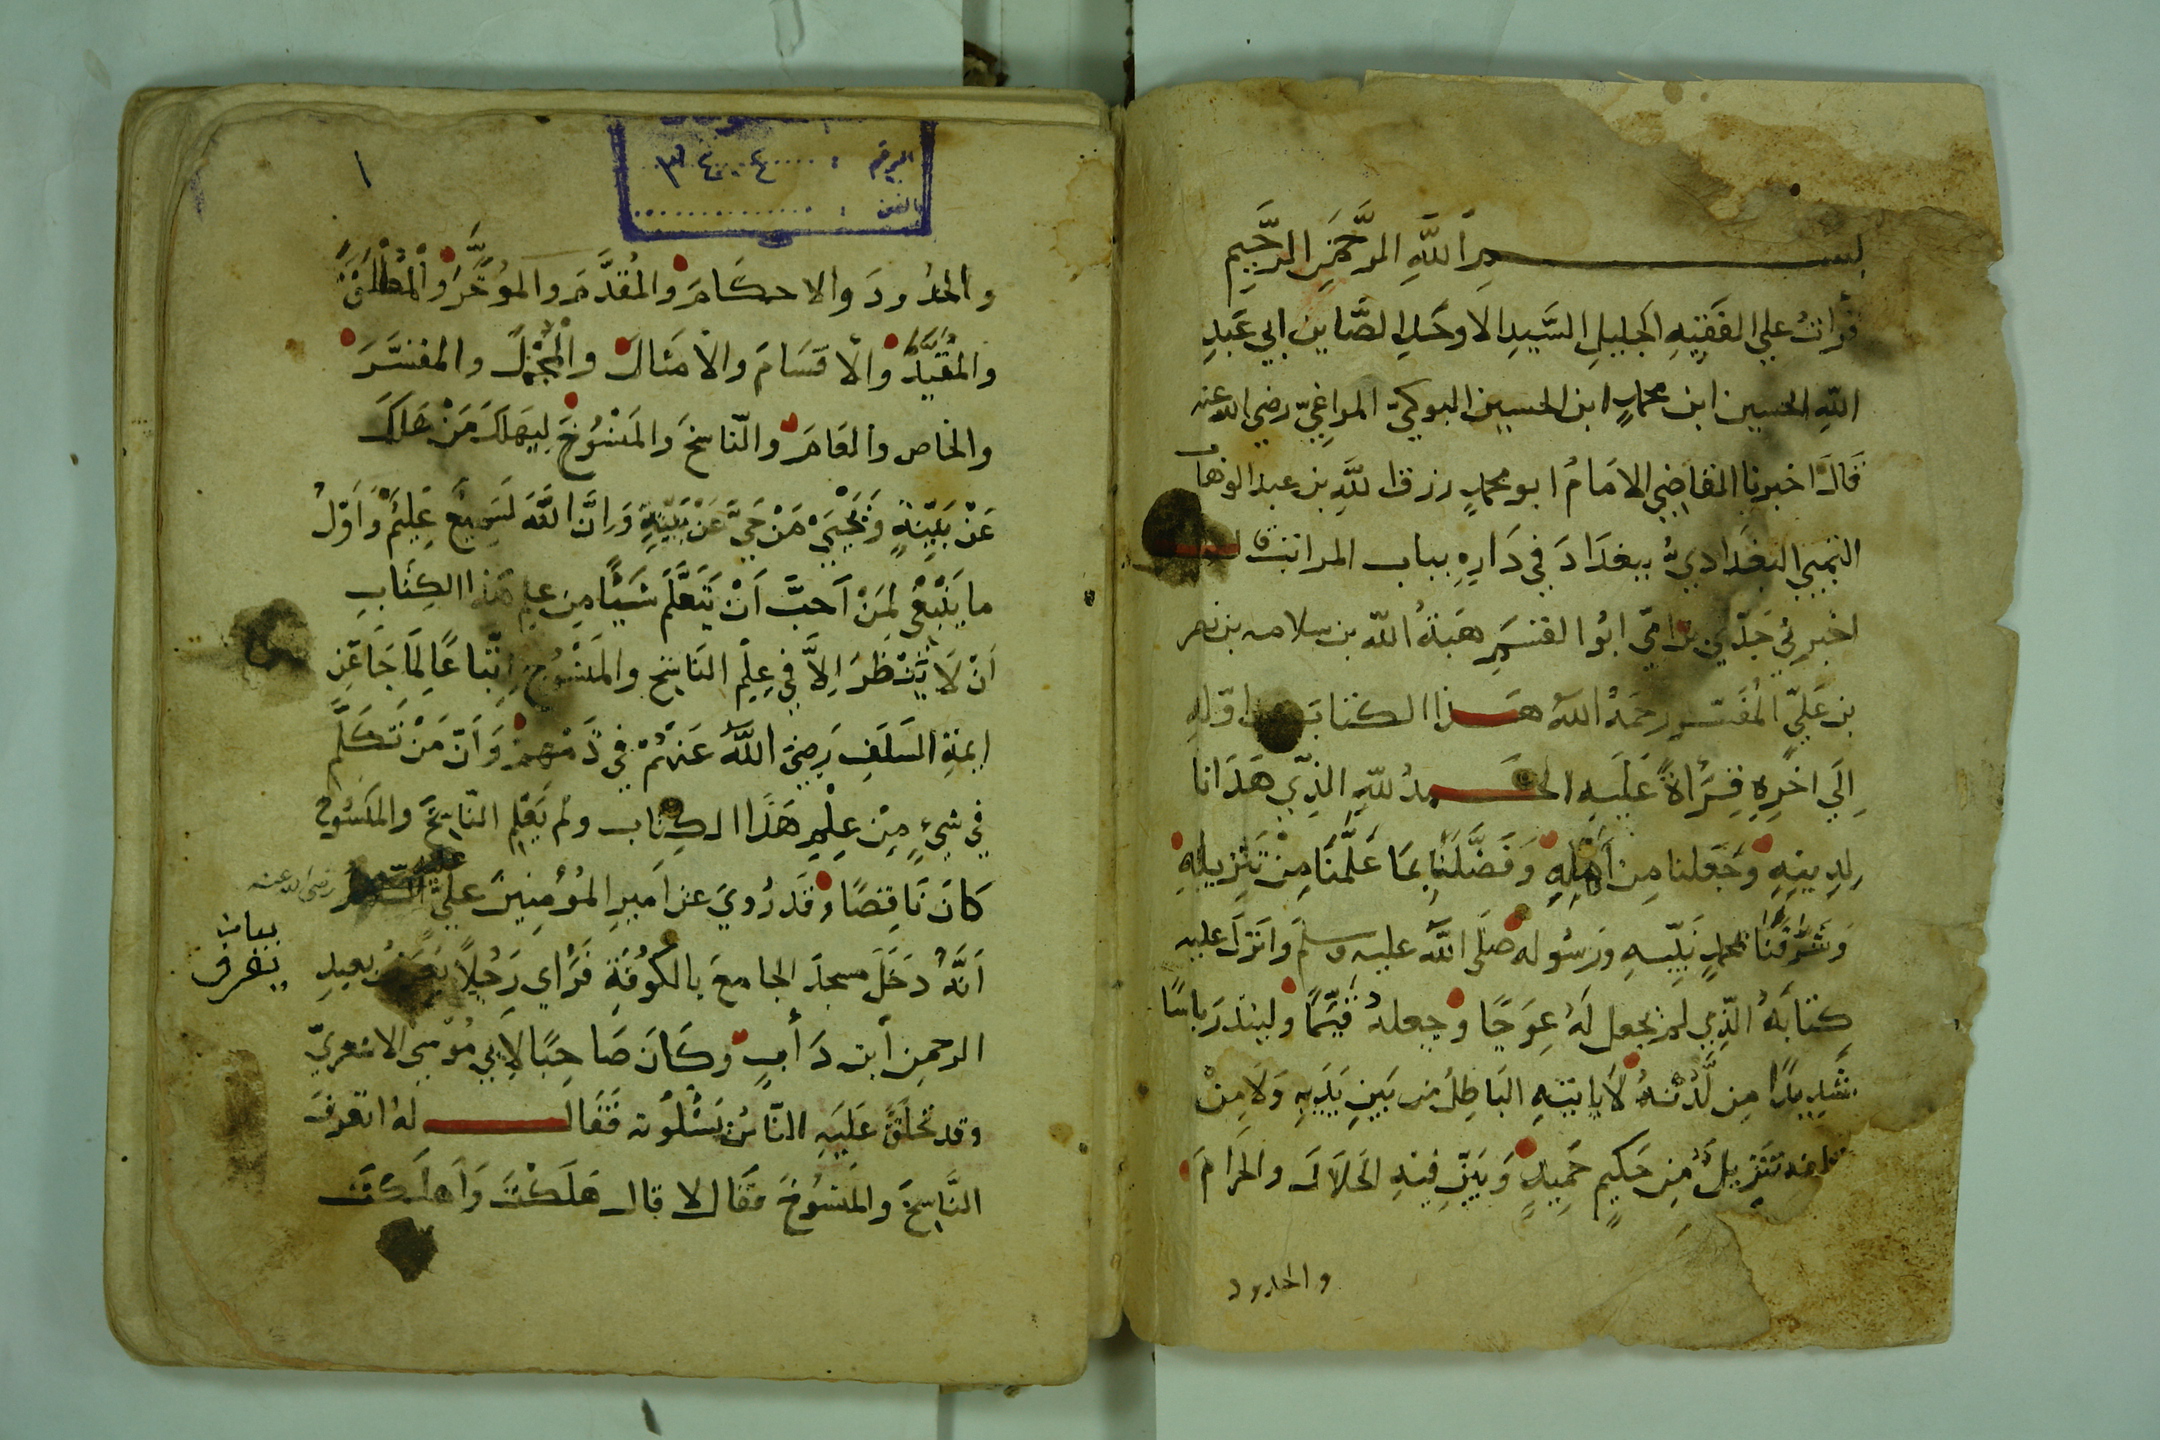 بسم الله الرحمن الرحيم
قرات علي الفقيه الجليل السيد الاوحد الصاين ابي عبد
الله الحسين ابن محمد ابن الحسين المراغي رضي الله عنه
قال اخبرنا القاضي الامام ابو محمد رزق الله بن عبد الوهاب
التميمي البغدادي ببغداد في داره بباب المراتب قال
اخبرني جدي من امي ابوا القسم هبة الله بن سلامه بن نصر
بن علي المفسر رحمة الله هذا الكتاب من اوله
الي اخره قراة عليه الحمد لله الذي هدانا
لدينه وجعلنا من اهله وفضلنا بما علمنا من تنزيله
وشرفنا بمحمد نبيه ورسوله صلى الله عليه وسلم وانزل عليه
كتابه الذي لم يجعل له عوجا وجعله قيما ولينذر باسا
شديدا من لدنه لا ياتيه الباطل من بين يديه ولا من
خلفه تنزيل من حكيم حميد وبين فيه الحلال والحرام
والحدود
١
الرقم : ٤٠٤٣
الفن :
والحدود والاحكام والمقدم والموخر والمطلق
والمقيد والاقسام والامثال والمجمل والمفسر
والخاص والعام والناسخ والمنسوخ ليهلك من هلك
عن بينة ويحيي من حي عن بينة وان الله لسميع عليم واول
ما ينبغي لمن احب ان يتعلم شيئا من علم هذا الكتاب
ان لا ينظر الا في علم الناسخ والمنسوخ اتباعا لما جا عن
ايمة السلف رضي الله عنهم في ذمهم وان من تكلم
في شيء من علم هذا الكتاب ولم يعلم الناسخ والمنسوخ
كان ناقصا وقد روي عن امير المؤمنين علي عليه السلم رضي الله عنه
انه دخل مسجد الجامع بالكوفة فراي رجلا يعرف بعبد
يعرف
الرحمن ابن دأب وكان صاحبا لابي موسي الاشعري
وقد تحلق عليه الناس يسئلونه فقال له اتعرف
الناسخ والمنسوخ فقال لا قال هلكت واهلكت